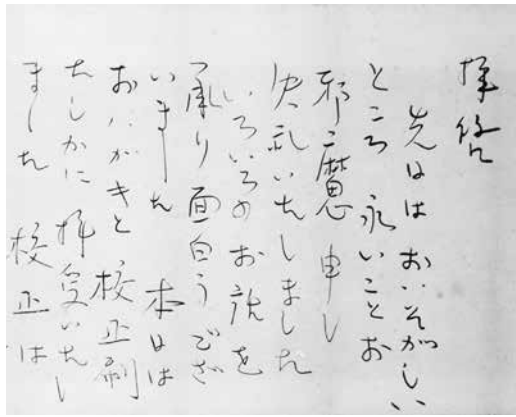 拝啓
先日はおいそがしい
ところ 永いことお
邪魔申し
失礼いたしました
いろいろのお説を
承り面白うござ
いました 本日は
おハガキと校正刷
たしかに拝受いたし
ました 校正は